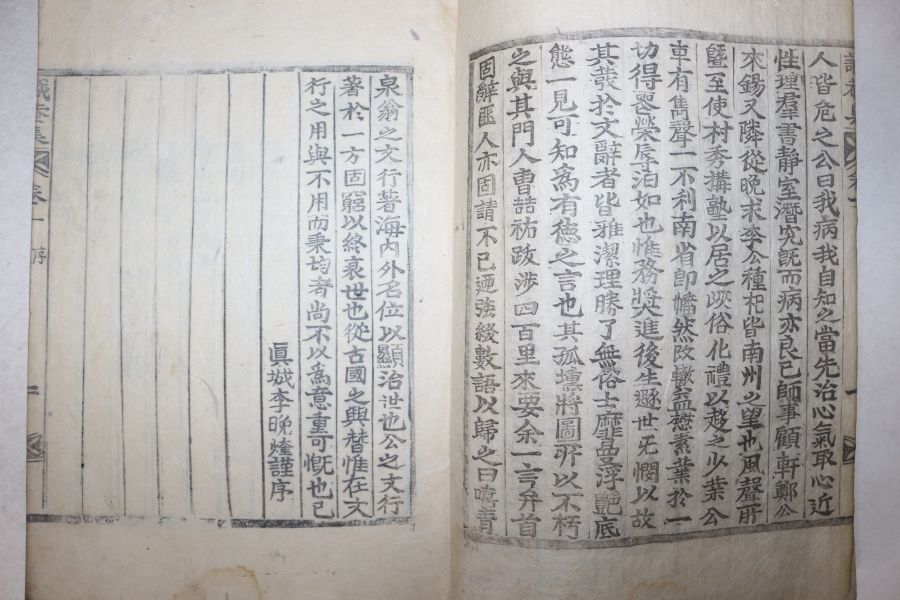 人皆危之公曰我病我自知之當先治心氣取心近
性理羣書靜室潛究旣而病亦良已師事顧軒鄭公
來錫又隣從晩求李公種杞皆南州之望也風聲所
曁至使村秀搆塾以居之峽俗化禮以趍之少業公
車有雋聲一不利南省卽幡然改轍益懋素業於一
切得喪榮辱泊如也惟務奬進後生遯世无憫以故
其發於文辭者皆雅潔理勝了無俗士靡曼浮艶底
態一見可知爲有德之言也其孤壎將圖所以不朽
之與其門人曺喆祐跋涉四百里來要余一言弁首
固辭匪人亦固請不已逎強綴數語以歸之曰嘻靑
泉翁之文行著海內外名位以顯治世也公之文行
著於一方固窮以終衰世也從古國之興替惟在文
行之用與不用而秉均者尚不以爲意重可慨也已
眞城李晩煃謹序
集 卷一 序